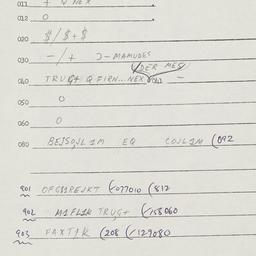 011 + Q NEX
012 O
020 $/$+$
030 -/+ J-MAMUDES
UDER MES
040 TRUG+ Q FIRN... NEX
050 O
060 O
080 BEJSOJL 1M EQ COJL1M (092
901 OFG11REJKT (077010 (812
902 M1FL1K TRUG+ (158060
903 FAXT1K (208 (129080